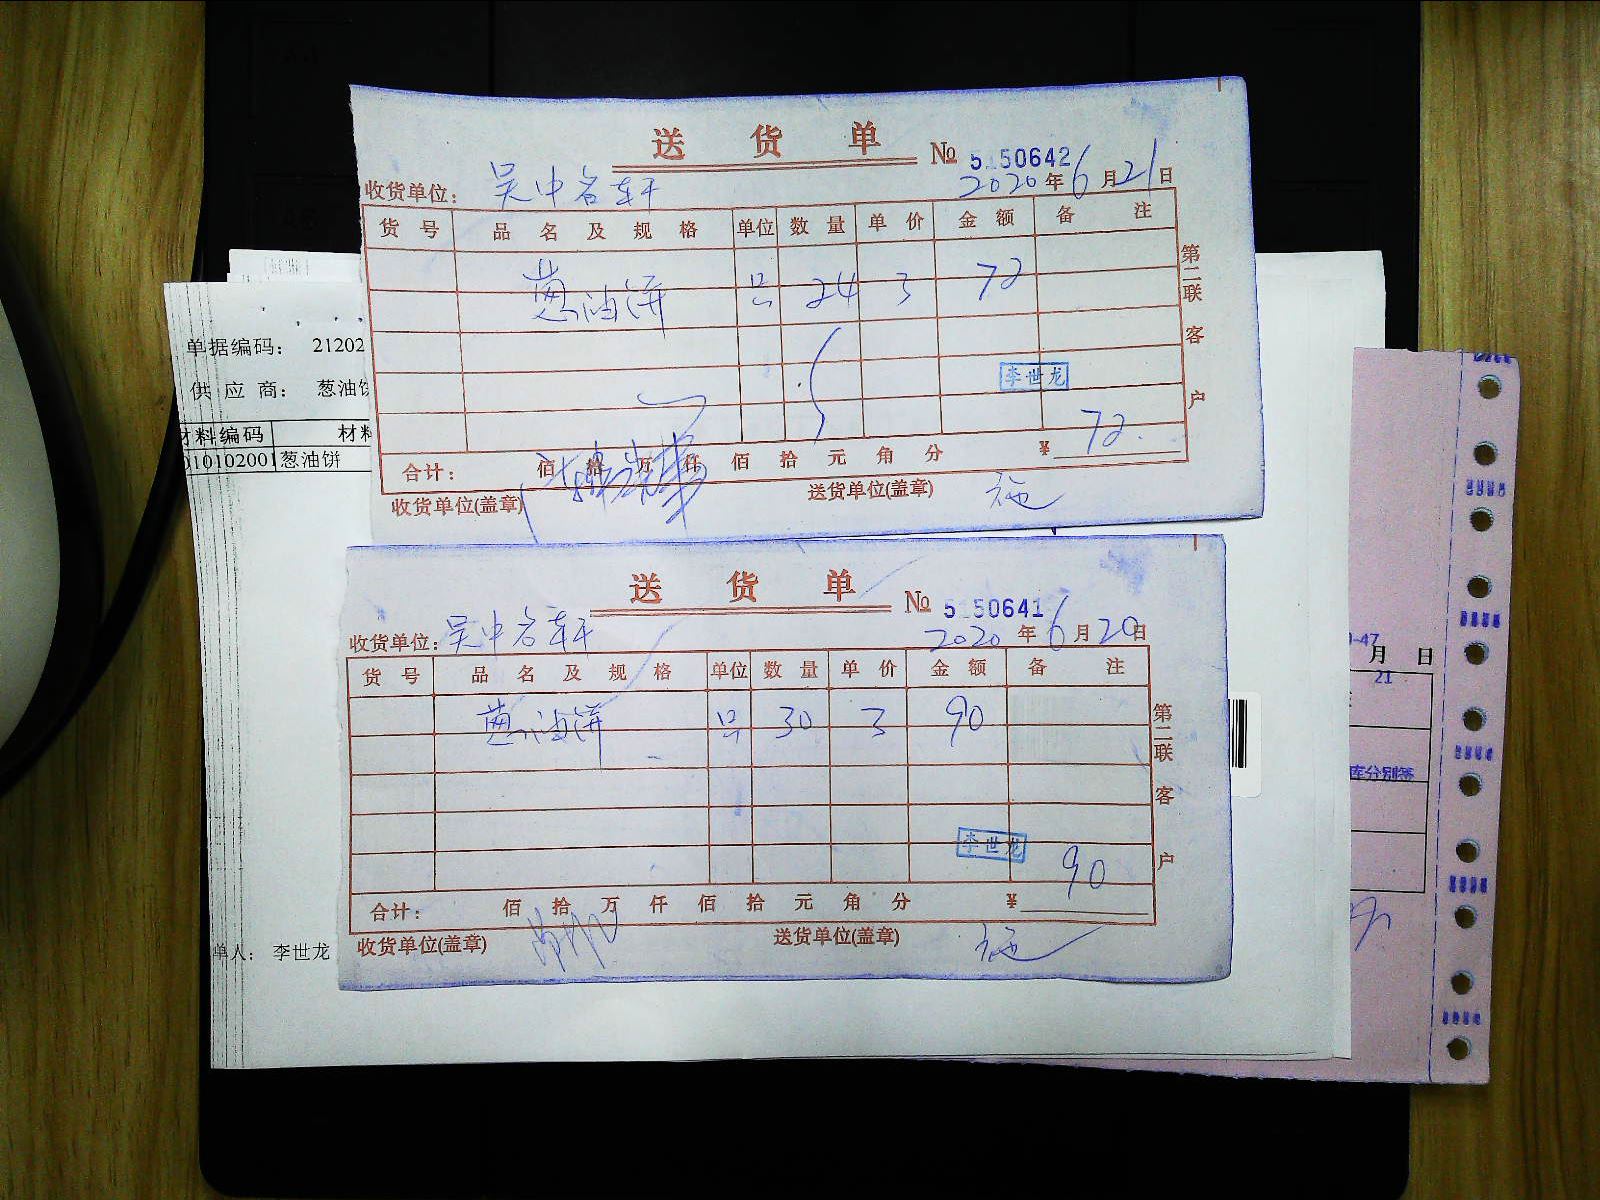 送 货 单 № 5 50642
收货单位： 吴中名轩 2020 年 6 月 21 日
货 号 品 名 及 规 格 单位 数 量 单 价 金 额 备 注
葱油饼 24 3 72
李世龙
72.
合计： 佰 拾 万 仟 佰 拾 元 角 分 ¥
收货单位(盖章) 送货单位(盖章) 施
第二联 客 户
单据编码： 21202
供 应 商： 葱油饼
材料编码 材料
010102001 葱油饼
送 货 单 № 5 50641
收货单位： 吴中名轩 2020 年 6 月 20 日
货 号 品 名 及 规 格 单位 数 量 单 价 金 额 备 注
葱油饼 30 3 90
李世龙
90
合计： 佰 拾 万 仟 佰 拾 元 角 分 ¥
收货单位(盖章) 送货单位(盖章) 施
第二联 客 户
单人： 李世龙
-47
月 日
21
库分别签